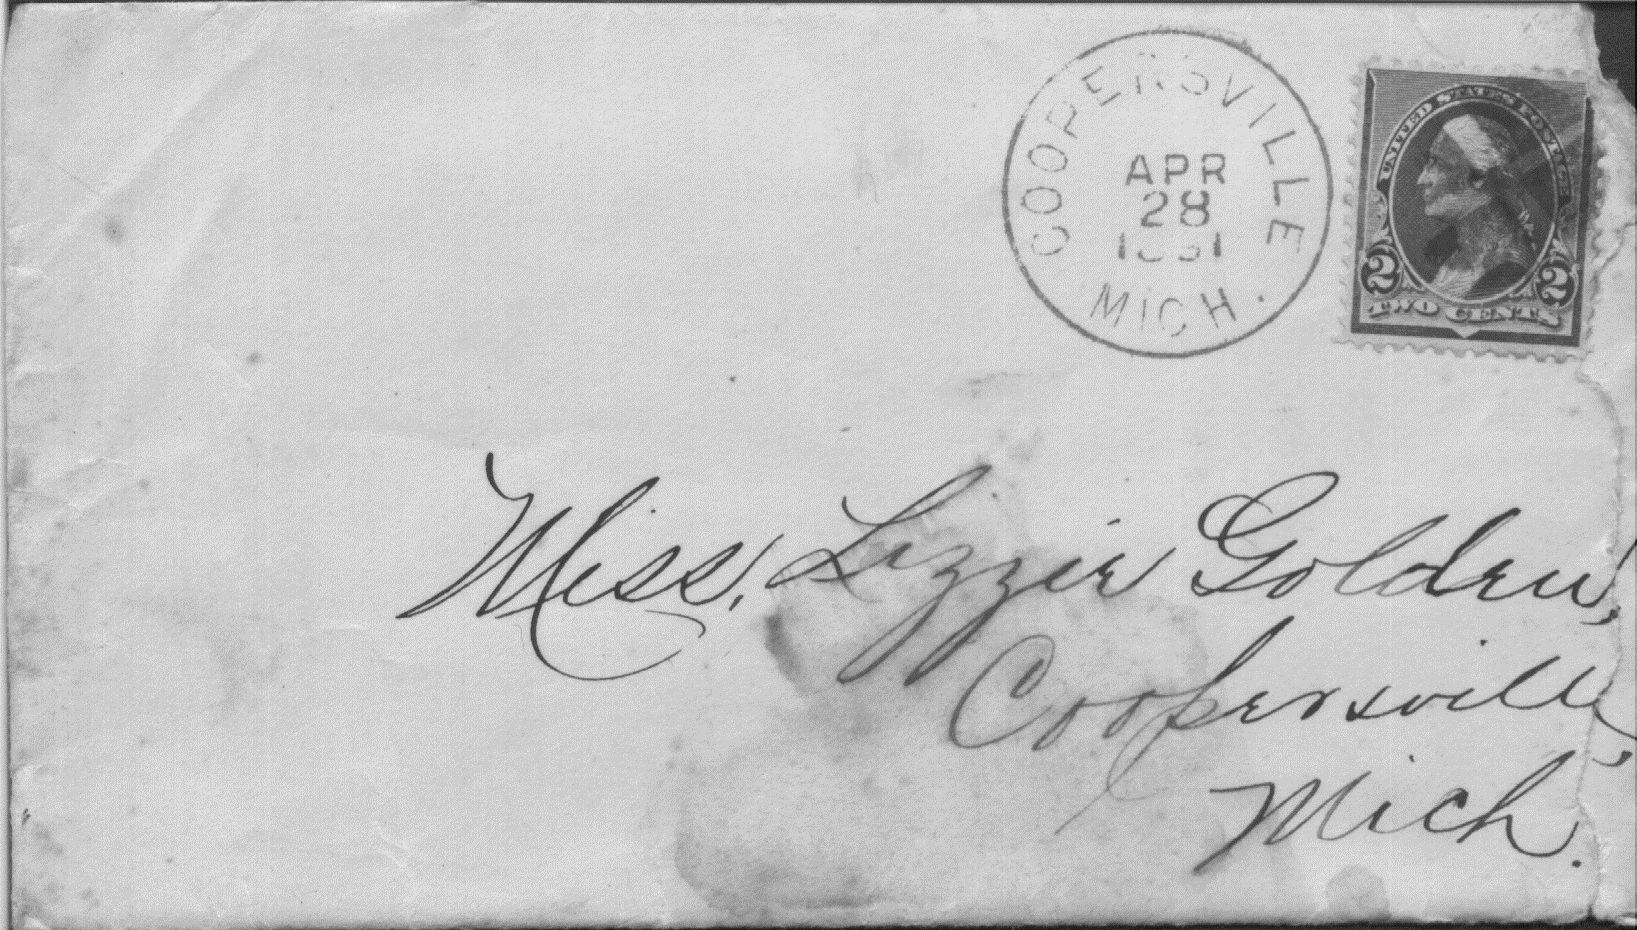 COOPERSVILLE
APR
28
MICH.
UNITED STATES POSTAGE
2 2
TWO CENTS
Miss. Lizzie Golden,
Coopersville,
Mich.